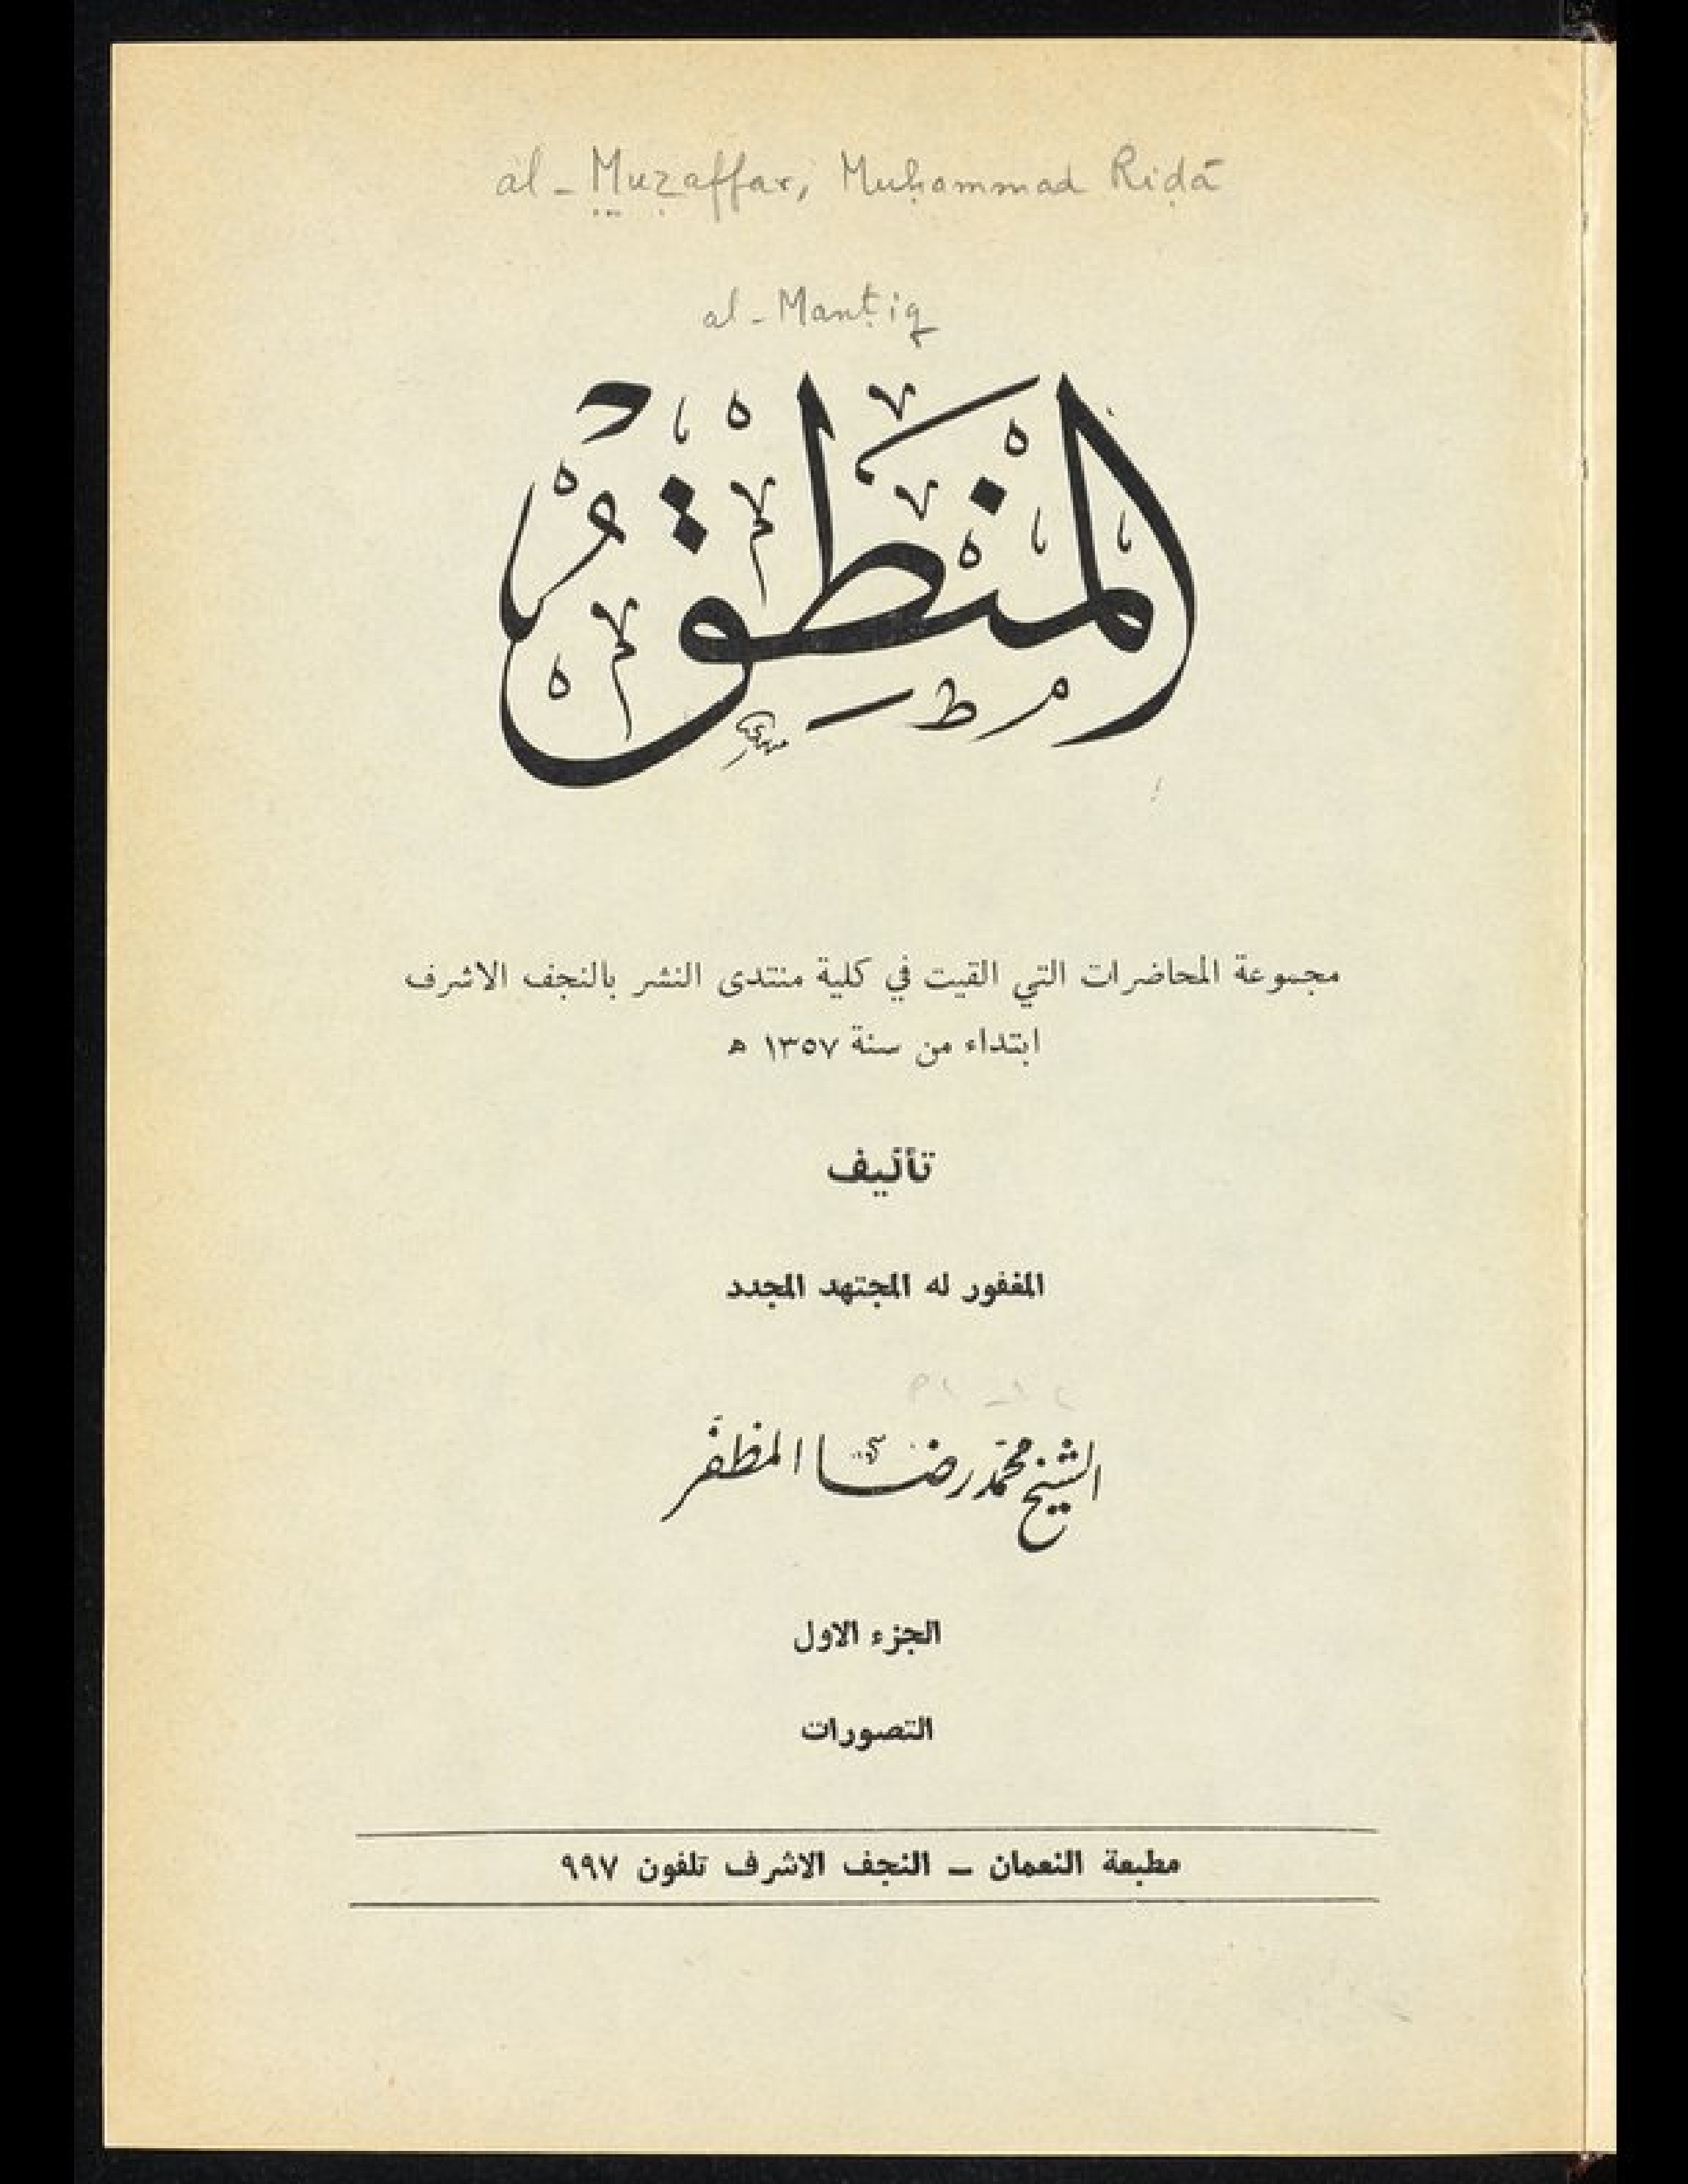 al-Muẓaffar, Muḥammad Riḍā
al-Manṭiq
المَنْطِقُ
مجموعة المحاضرات التي القيت في كلية منتدى النشر بالنجف الاشرف
ابتداء من سنة ١٣٥٧ ه
تأليف
المغفور له المجتهد المجدد
الشيخ محمد رضا المظفر
الجزء الاول
التصورات
مطبعة النعمان – النجف الاشرف تلفون ٩٩٧